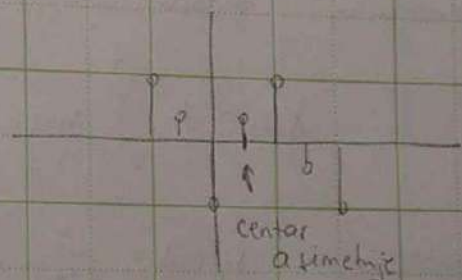 centar
asimetrije